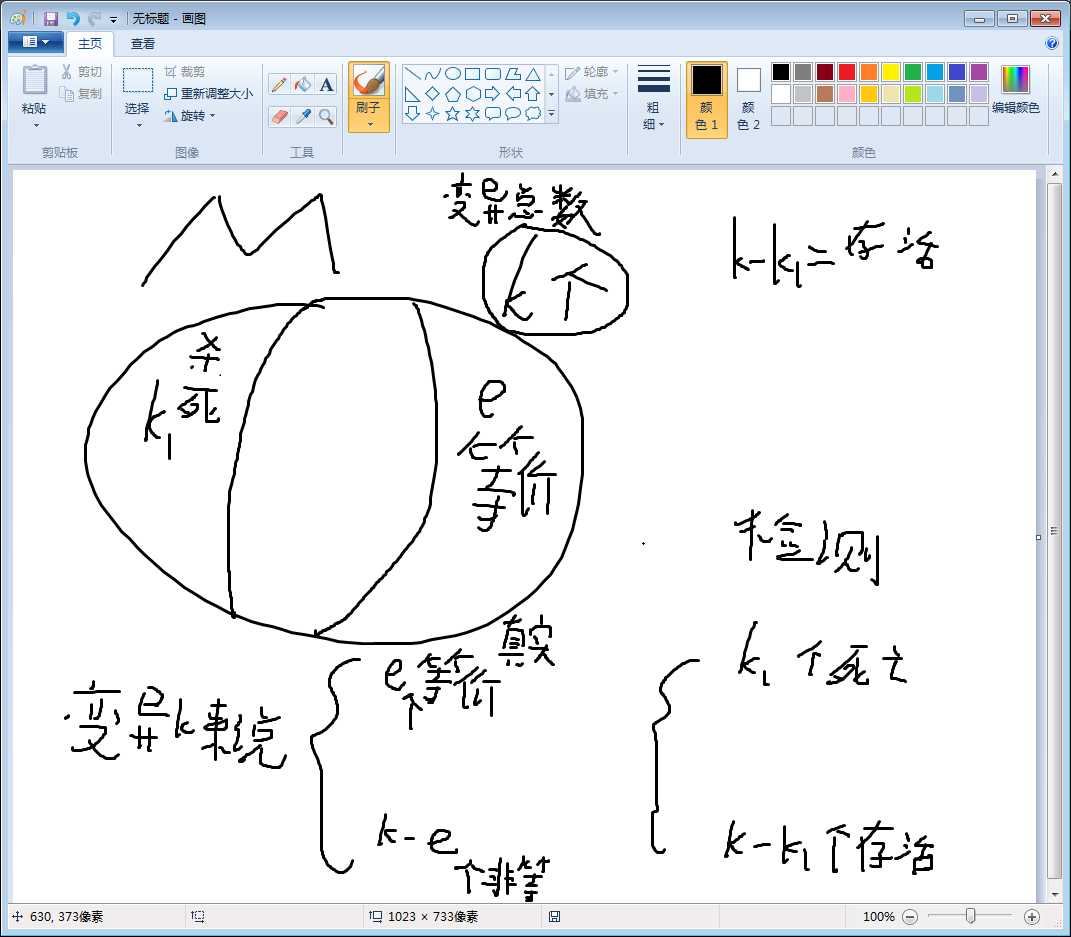 无标题 - 画图
主页 查看
粘贴 剪切 复制 剪贴板
选择 裁剪 重新调整大小 旋转 图像
A 工具
刷子
轮廓 填充 形状
粗细
颜色 1 颜色 2 编辑颜色 颜色
变异总数
k个
k-k1=存活
杀死
k1
e
等价
检测
变异k系统
e个等价 真实
k-e
个非等
k1个死亡
k-k1个存活
630, 373像素 1023 × 733像素 100%